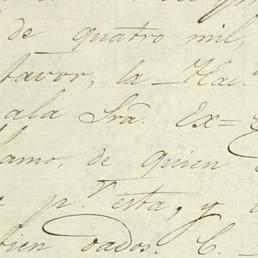 de quatro mil,
favor, la Hac.
ala Sra. Ex=
lamo, de quien
p.r esta, y
bien dados. C.